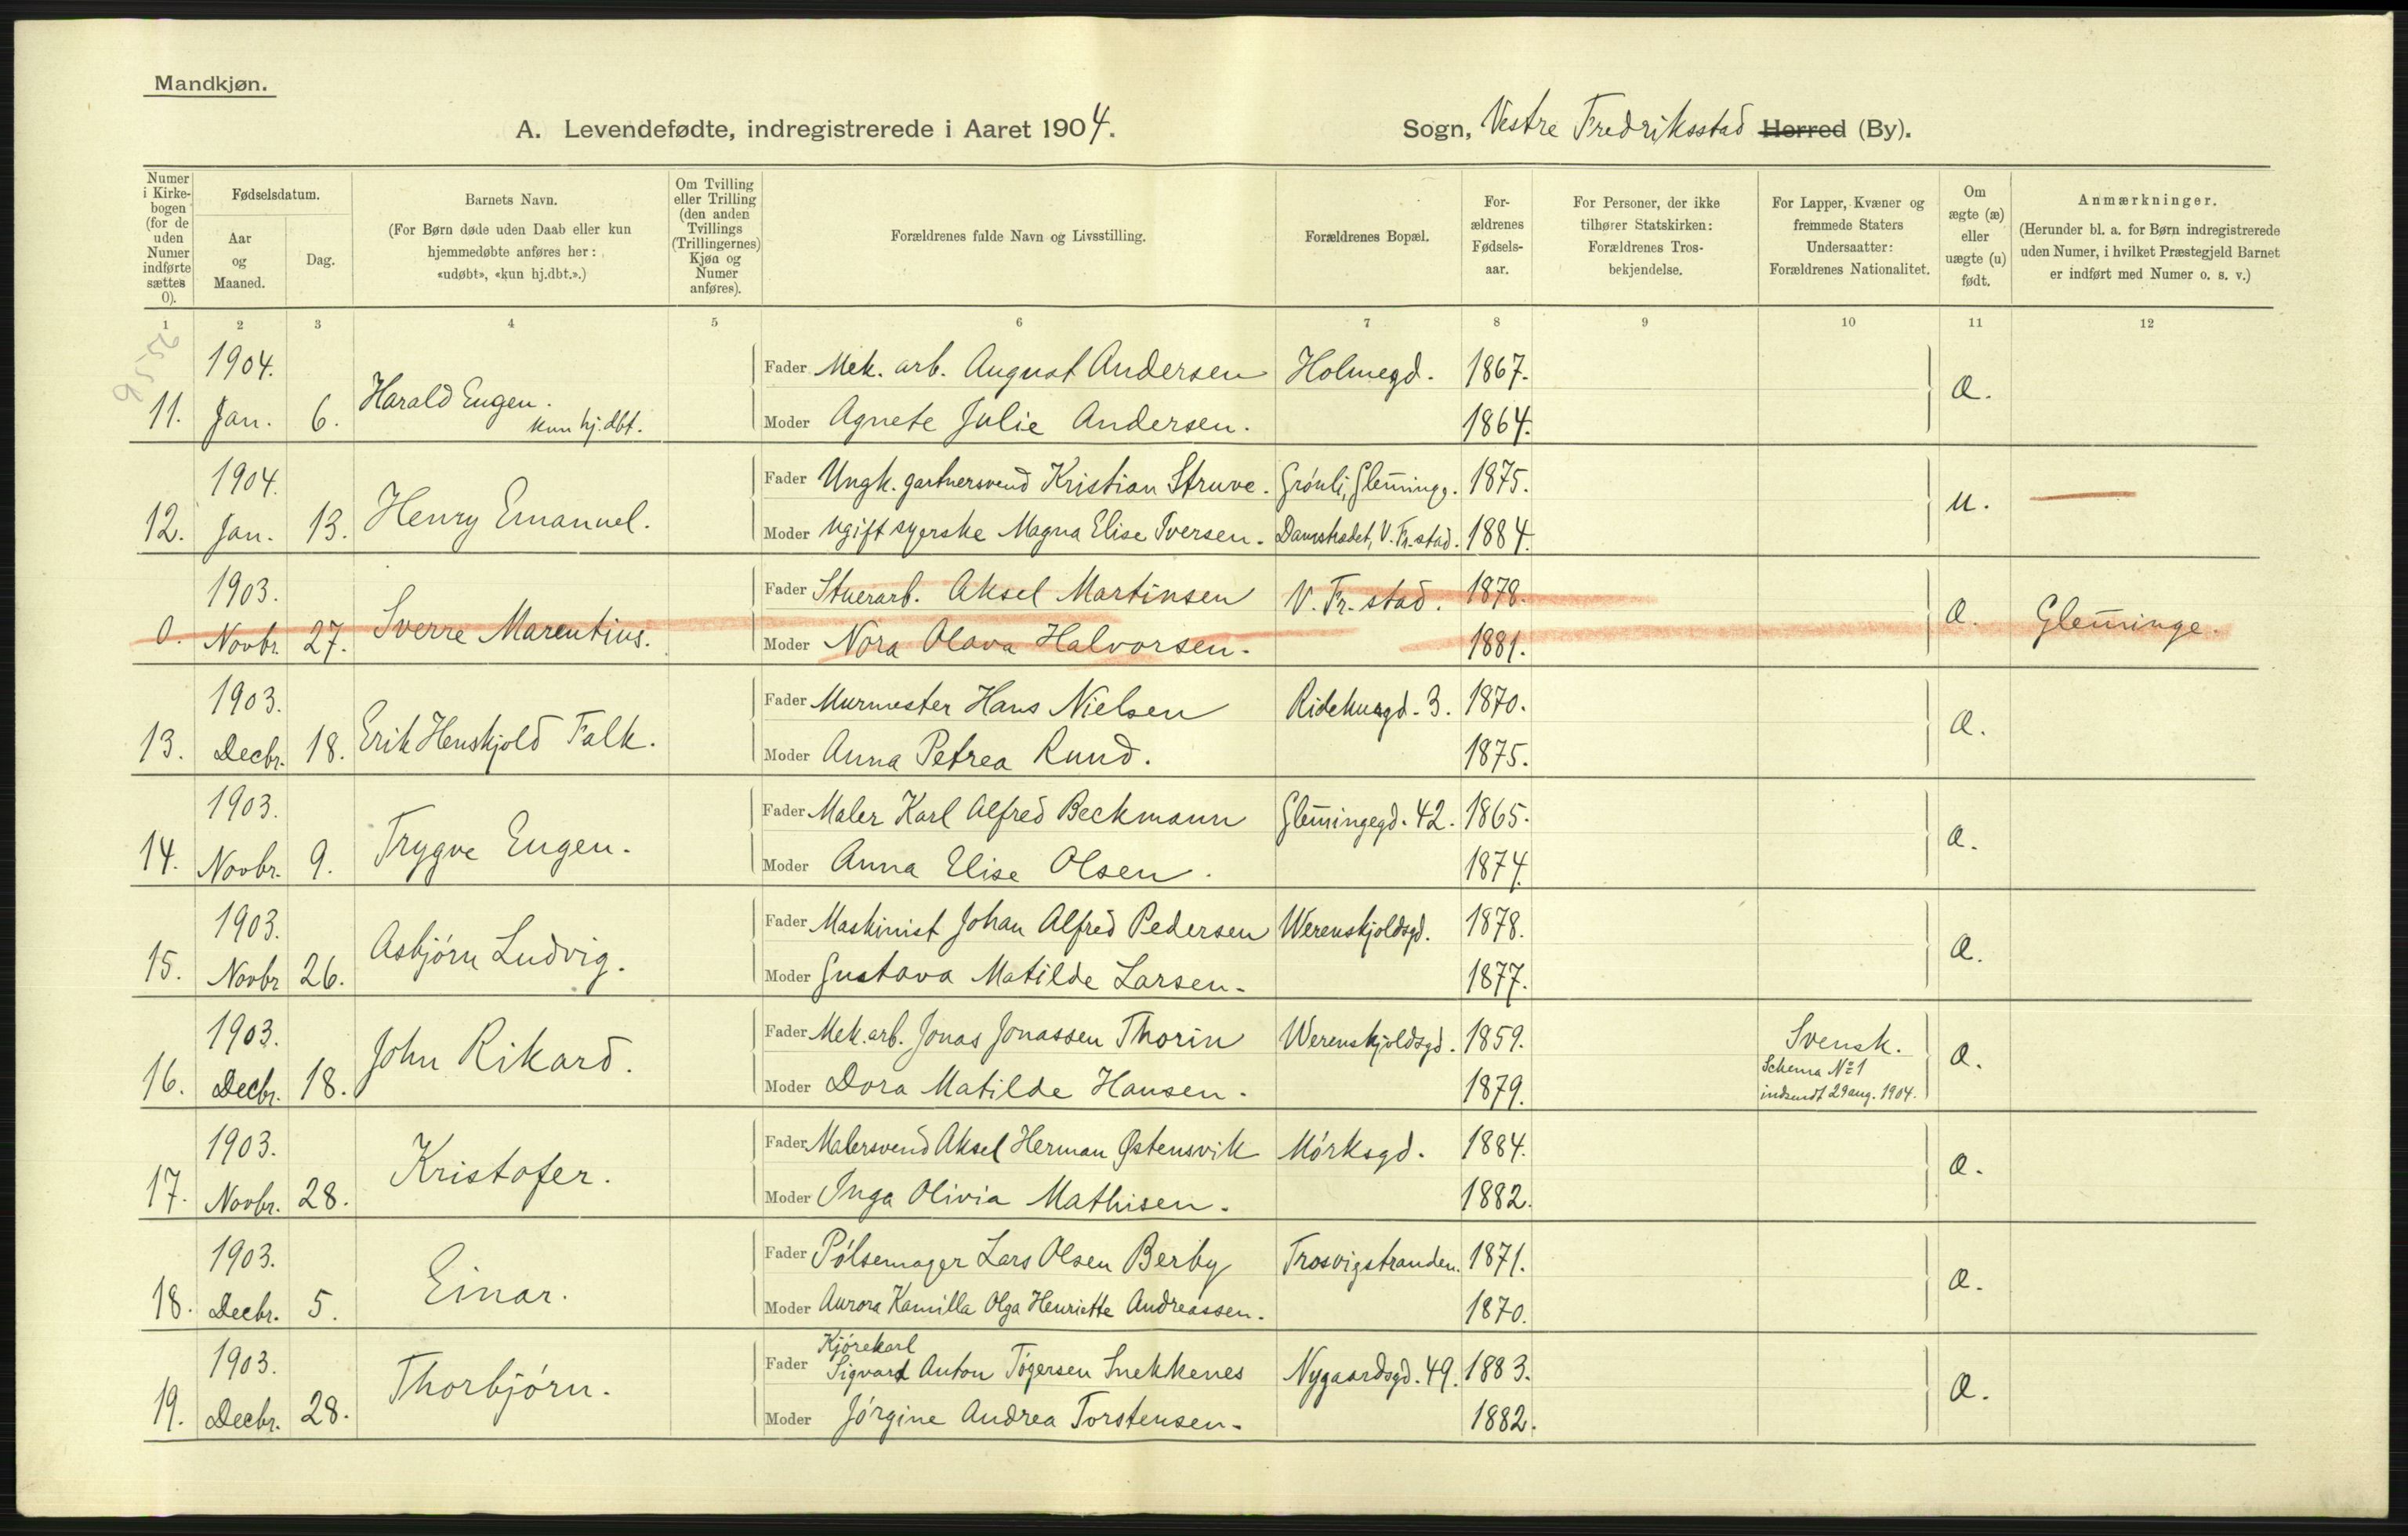 Mandkjøn.
A. Levendefødte, indregistrerede i Aaret 1904.
Sogn, Vestre Fredriksstad Herred (By).
Numer i Kirkebogen (for de uden Numer indførte sættes 0).
Fødselsdatum.
Aar og Maaned.
Dag.
Barnets Navn.
(For Børn døde uden Daab eller kun hjemmedøbte anføres her: «udøbt», «kun hj.dbt.».)
Om Tvilling eller Trilling (den anden Tvillings (Trillingernes) Kjøn og Numer anføres).
Forældrenes fulde Navn og Livsstilling.
Forældrenes Bopæl.
Forældrenes Fødselsaar.
For Personer, der ikke tilhører Statskirken: Forældrenes Trosbekjendelse.
For Lapper, Kvæner og fremmede Staters Undersaatter: Forældrenes Nationalitet.
Om ægte (æ) eller uægte (u) født.
Anmærkninger.
(Herunder bl. a. for Børn indregistrerede uden Numer, i hvilket Præstegjeld Barnet er indført med Numer o. s. v.)
1 2 3 4 5 6 7 8 9 10 11 12
1904. Fader Mek. arb. August Andersen Holmegd. 1867.
11. Jan. 6. Harald Eugen. kun hj. dbt. Moder Agnete Julie Andersen. 1864. æ.
1904. Fader Ungk. gartnersvend Kristian Struve. Grønli, Glem̄inge. 1875.
12. Jan. 13. Henry Emanuel. Moder ugift syerske Magna Elise Iversen. Damstrædet, V. Fr.stad. 1884. u.
1903. Fader Stuerarb. Aksel Martinsen V. Fr.stad. 1878.
0. Novbr. 27. Sverre Marentius. Moder Nora Olava Halvorsen. 1881. æ. Glem̄inge.
1903. Fader Murmester Hans Nielsen Ridehusgd. 3. 1870.
13. Decbr. 18. Erik Henskjold Falk. Moder Anna Petrea Rund. 1875. æ.
1903. Fader Maler Karl Alfred Beckmann Glem̄ingegd. 42. 1865.
14. Novbr. 9. Trygve Eugen. Moder Anna Elise Olsen. 1874. æ.
1903. Fader Maskinist Johan Alfred Pedersen Werenskjoldsgd. 1878.
15. Novbr 26. Asbjørn Ludvig. Moder Gustava Matilde Larsen. 1877. æ.
1903. Fader Mek. arb. Jonas Jonassen Thorin Werenskjoldsgd. 1859. Svensk.
16. Decbr. 18. John Rikard. Moder Dora Matilde Hansen. 1879. Schema No 1 indsendt 29 aug. 1904. æ.
1903. Fader Malersvend Aksel Herman Østensvik Mørksgd. 1884.
17. Novbr. 28. Kristofer. Moder Inga Olivia Mathisen. 1882. æ.
1903. Fader Pølsemager Lars Olsen Berby Trosvigstranden. 1871.
18. Decbr. 5. Einar. Moder Aurora Kamilla Olga Henriette Andreassen. 1870. æ.
1903. Fader Kjørekarl Sigvard Anton Tøgersen Snekkenes Nygaardsgd. 49. 1883.
19. Decbr. 28. Thorbjørn. Moder Jørgine Andrea Torstensen. 1882. æ.